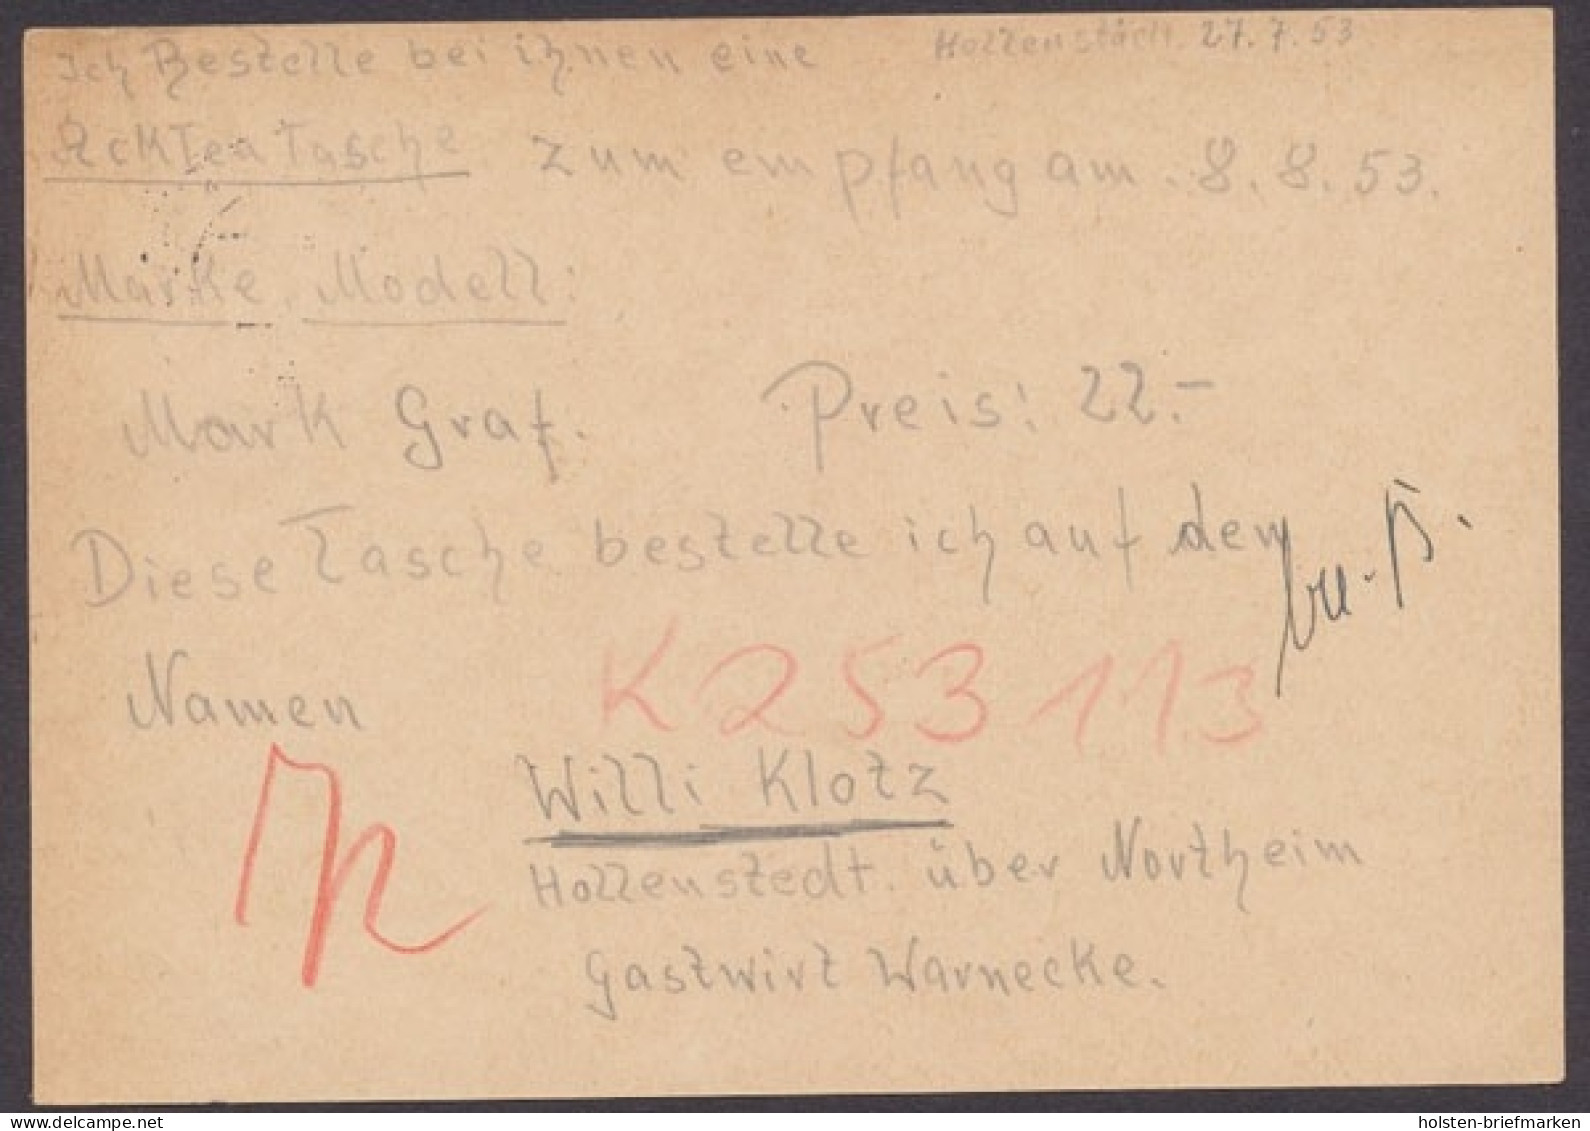 Hollenstädt. 27.7.53
Ich Bestelle bei ihnen eine
Ackten Tasche zum empfang am. 8.8.53.
Marke, Modell:
Mark Graf. Preis: 22.-
Diese Tasche bestelle ich auf den
Namen K253113
Willi Klotz
Hollenstedt. über Northeim
Gastwirt Warnecke.
holsten-briefmarken